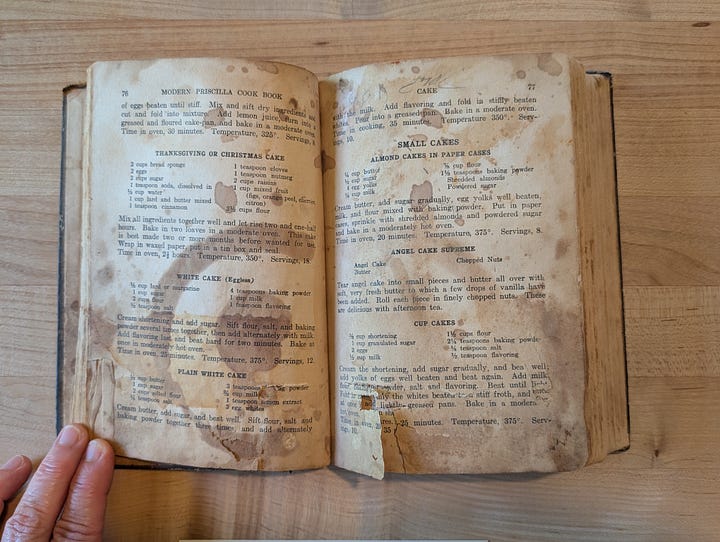 76 MODERN PRISCILLA COOK BOOK
of eggs beaten until stiff. Mix and sift dry ingredients and
cut and fold into mixture. Add lemon juice, turn into a
greased and floured cake-pan, and bake in a moderate oven.
Time in oven, 30 minutes. Temperature, 325°. Servings, 8.
THANKSGIVING OR CHRISTMAS CAKE
2 cups bread sponge
2 eggs
2 cups sugar
1 teaspoon soda, dissolved in
cup water
1 cup lard and butter mixed
1 teaspoon cinnamon
1 teaspoon cloves
1 teaspoon nutmeg
2 cups raisins
1 cup mixed fruit
(figs, orange peel,
citron)
cups flour
Mix all ingredients together well and let rise two and one-half
hours. Bake in two loaves in a moderate oven. This cake
is best made two or more months before wanted for use.
Wrap in waxed paper, put in a tin box and seal.
Time in oven, 2½ hours. Temperature, 350°. Servings, 18.
WHITE CAKE (Eggless)
cup lard or margarine
1 cup sugar
2 cups flour
teaspoon salt
4 teaspoons baking powder
1 cup milk
1 teaspoon flavoring
Cream shortening and add sugar. Sift flour, salt, and baking
powder several times together, then add alternately with milk.
Add flavoring last, and beat hard for two minutes. Bake at
once in moderately hot oven.
Time in oven, 25 minutes. Temperature, 375°. Servings, 12.
PLAIN WHITE CAKE
cup butter
1 cup sugar
cups sifted flour
teaspoon salt
3 teaspoons baking powder
cup milk
1 teaspoon lemon extract
3 egg whites
Cream butter, add sugar, and beat well. Sift flour, salt and
baking powder together three times, and add alternately
CAKE 77
with the milk. Add flavoring and fold in stiffly beaten
whites. Pour into a greased pan. Bake in a moderate oven.
Time in cooking, 35 minutes. Temperature 350°. Serv-
ings, 10.
SMALL CAKES
ALMOND CAKES IN PAPER CASES
cup butter
cup sugar
4 egg yolks
cup milk
cup flour
1½ teaspoons baking powder
Shredded almonds
Powdered sugar
Cream butter, add sugar gradually, egg yolks well beaten,
milk, and flour mixed with baking powder. Put in paper
cases, sprinkle with shredded almonds and powdered sugar
and bake in a moderately hot oven.
Time in oven, 20 minutes. Temperature, 375°. Servings, 8.
ANGEL CAKE SUPREME
Angel Cake
Butter
Chopped Nuts
Tear angel cake into small pieces and butter all over with
soft, very fresh butter to which a few drops of vanilla have
been added. Roll each piece in finely chopped nuts. These
are delicious with afternoon tea.
CUP CAKES
cup shortening
1 cup granulated sugar
2 eggs
cup milk
cups flour
teaspoons baking powder
teaspoon salt
½ teaspoon flavoring
Cream the shortening, add sugar gradually, and beat well;
add yolks of eggs well beaten and beat again. Add milk,
flour, powder, salt and flavoring. Beat until
Fold in the whites beaten to a stiff froth, and
at once in lightly greased pans. Bake in a moderate
Time in 25 minutes. Temperature, 375°. Serv-
ings, 10.